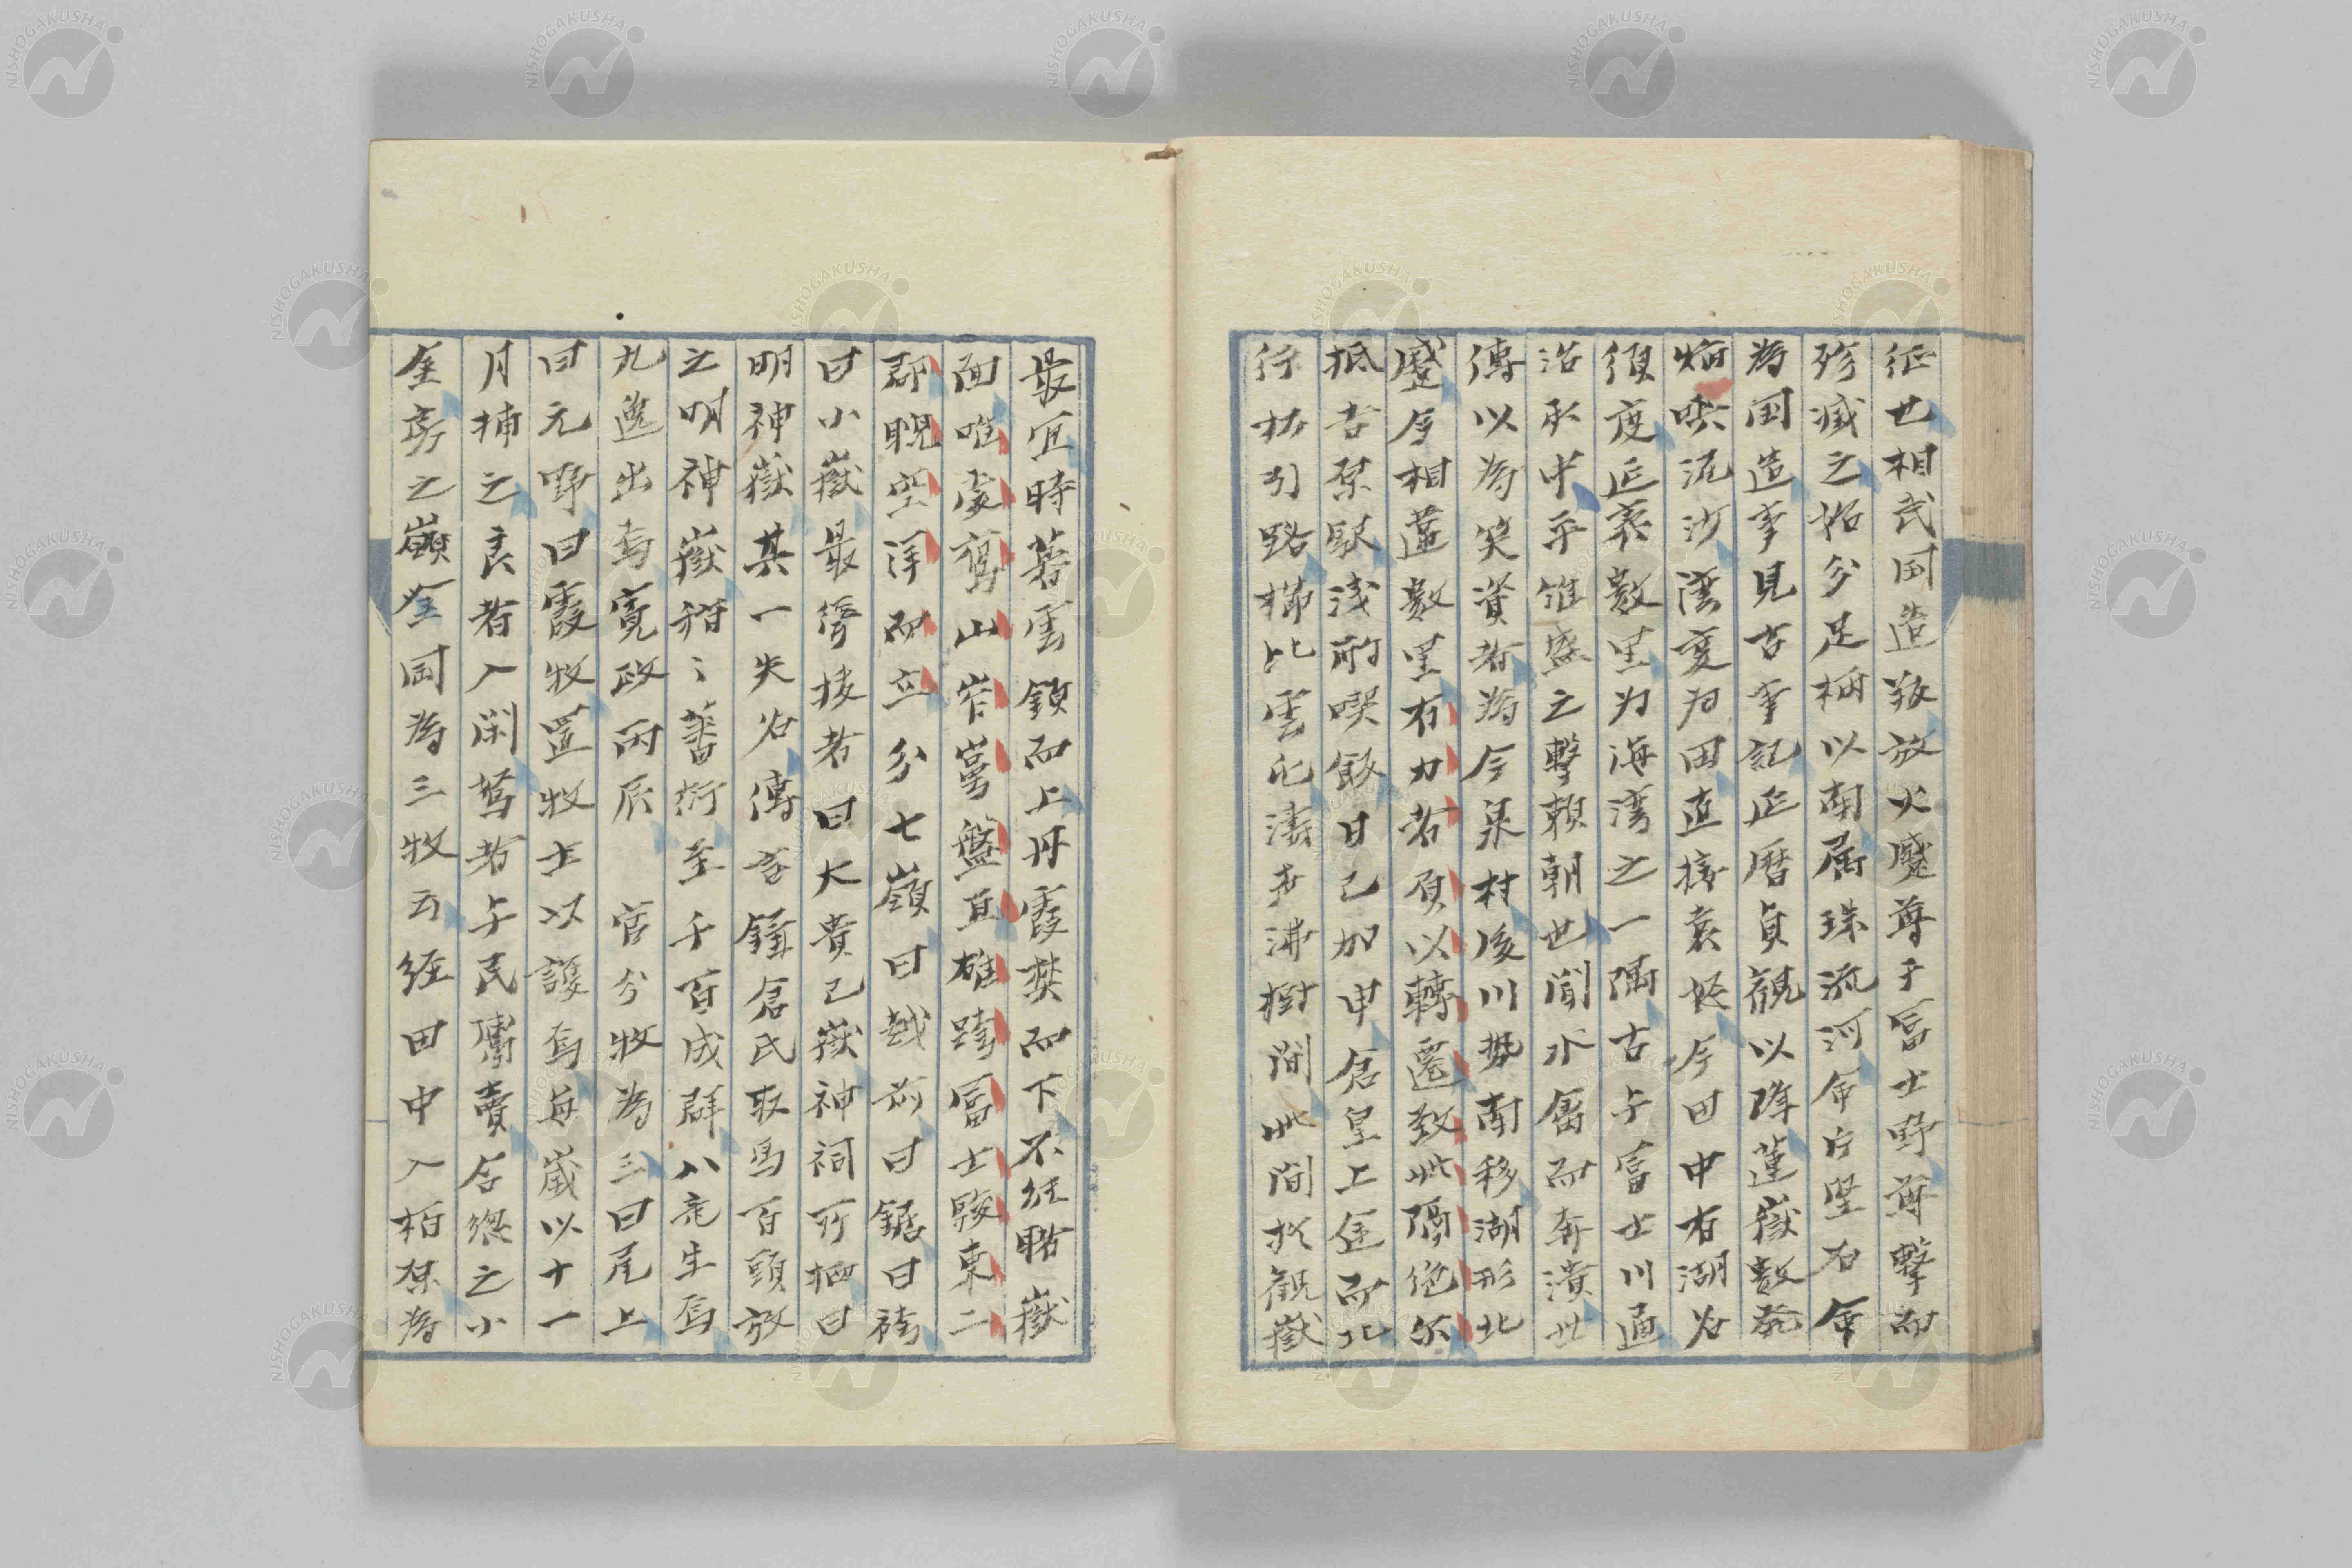 征也相武国造叛放火蹙尊于富士野尊撃而
殄滅之拓分足柄以南属珠流河命片堅石命
為国造事見古事記延暦貞観以降蓮嶽数発
焔噴沉沙湾変為田直接袁延今田中有湖名
須度延袤数里为海湾之一隅古与富士川通
治承中平維盛之撃頼朝也聞水禽而奔潰世
傳以為笑資者為今泉村後川勢南移湖形北
蹙今相蓮数里有力者負以轉遷致此隔絶尓
抵吉原駅浅酌喫飯日已加申倉皇上途而北
行松引路櫛比雲心濤声沸樹間此間於観嶽
最宜時暮雲鎖而上丹霞焚而下不紅賂嶽
面唯愛鷹山岩蔓盤亘雄踞冨士駿東二
郡睨空洋而立分七嶺曰越前曰鋸曰袴
曰小嶽最喬接者曰大貴己嶽神祠所栖曰
明神嶽其一失名傳言鎌倉氏取馬百頭放
之明神嶽稍々蕃衍至千百成群八荒生焉
九逸出焉寛政丙辰 官分牧為三曰尾上
曰元野曰霞牧置牧士以護焉毎歳以十一
月捕之良者入閑駑者与民傳賣居總之小
金房之嶺金岡為三牧云経田中入柏原為